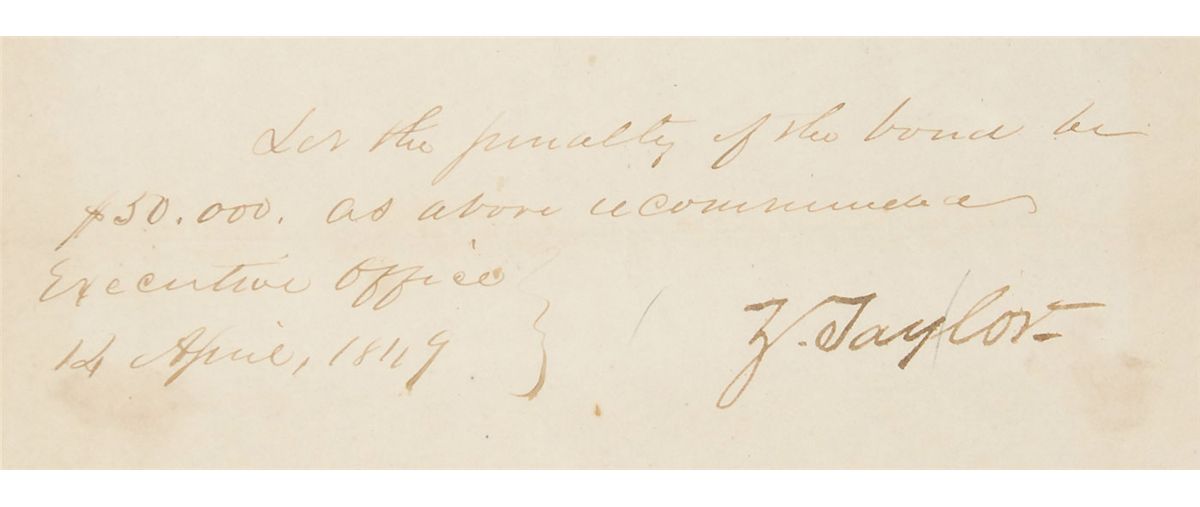 Let the penalty of the bond be
$50.000. as above recommended
Executive Office
12 April, 1849
Z. Taylor